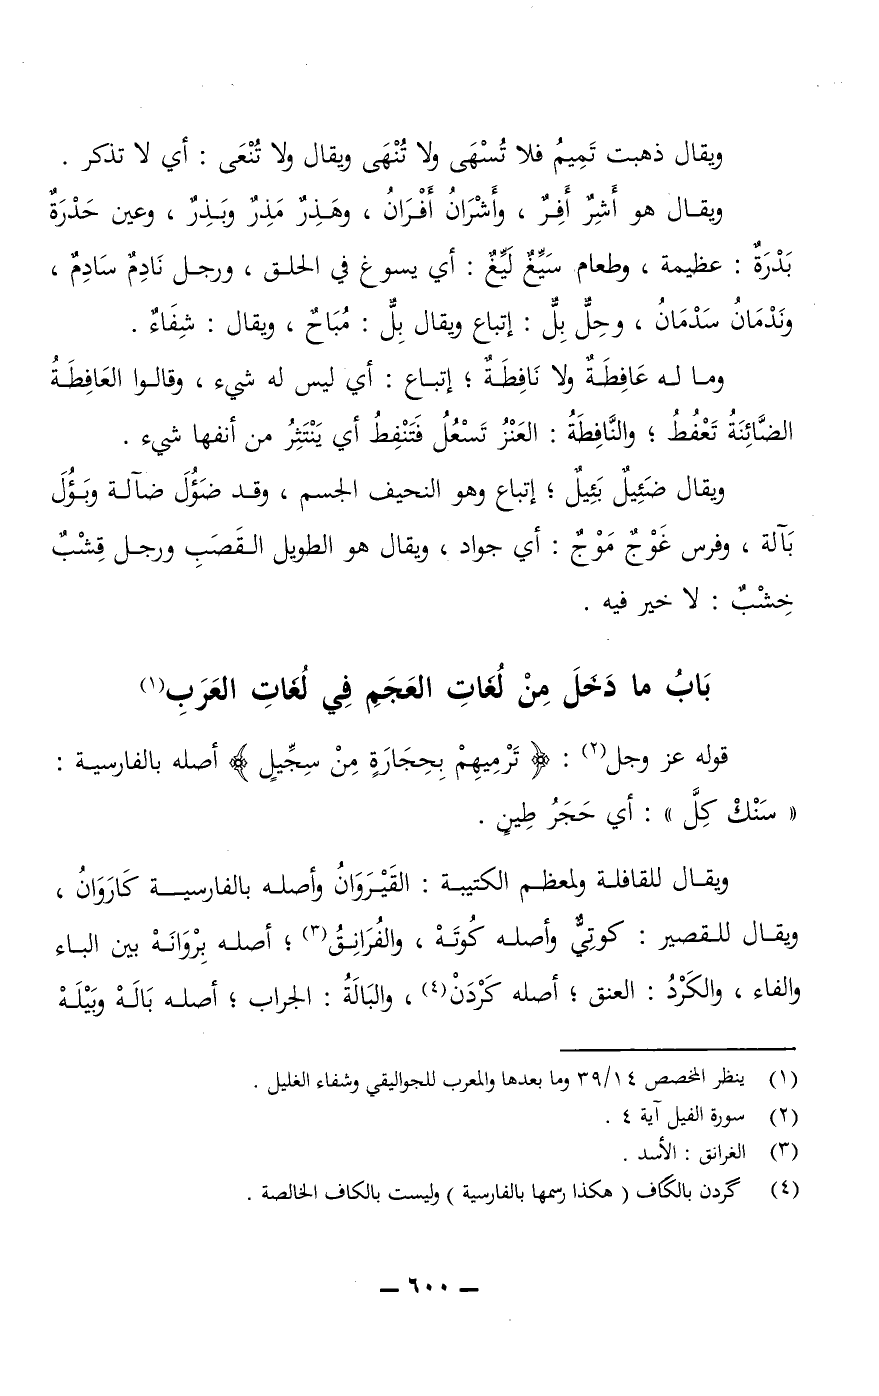 ويقال ذهبت تَمِيمُ فلا تُسْهَى ولا تُنْهَى ويقال ولا تُنْعَى : أي لا تذكر .
ويقال هو أَشِرٌ أَفِرٌ ، وأَشْرَانُ أَفْرَانُ ، وهَذِرٌ مَذِرٌ وبَذِرٌ ، وعين حَدْرَةٌ
بَدْرَةٌ : عظيمة ، وطعام سَيِّغٌ لَيِّغٌ : أي يسوغ في الحلق ، ورجل نَادِمٌ سَادِمٌ ،
ونَدْمَانُ سَدْمَانُ ، وحِلٌّ بِلٌّ : إتباع ويقال بِلٌّ : مُبَاحٌ ، ويقال : شِفَاءٌ .
وما له عَافِطَةٌ ولا نَافِطَةٌ ؛ إتباع : أي ليس له شيء ، وقالوا العَافِطَةُ
الضَّائِنَةُ تَعْفُطُ ؛ والنَّافِطَةُ : العَنْزُ تَسْعُلُ فَتَنْفِطُ أي يَنْتَثِرُ من أنفها شيء .
ويقال ضَئِيلٌ بَئِيلٌ ؛ إتباع وهو النحيف الجسم ، وقد ضَؤُلَ ضآلة وبَؤُلَ
بَآلة ، وفرس غَوْجٌ مَوْجٌ : أي جواد ، ويقال هو الطويل القَصَبِ ورجل قِشْبٌ
خِشْبٌ : لا خير فيه .
بَابُ ما دَخَلَ مِنْ لُغَاتِ العَجَمِ فِي لُغَاتِ العَرَبِ(١)
قوله عز وجل(٢) : ﴿ تَرْمِيهِمْ بِحِجَارَةٍ مِنْ سِجِّيلٍ ﴾ أصله بالفارسية :
« سَنْكْ كِلَّ » : أي حَجَرُ طِينٍ .
ويقال للقافلة ولمعظم الكتيبة : القَيْرَوَانُ وأصله بالفارسية كَارَوَانُ ،
ويقال للقصير : كوتِيٌّ وأصله كُوتَهْ ، والفُرَانِقُ(٣) ؛ أصله بِرْوَانَهْ بين الباء
والفاء ، والكَرْدُ : العنق ؛ أصله كَرْدَنْ(٤) ، والبَالَةُ : الجراب ؛ أصله بَالَهْ وبَيْلَهْ
(١) ينظر المخصص ٣٩/١٤ وما بعدها والمعرب للجواليقي وشفاء الغليل .
(٢) سورة الفيل آية ٤ .
(٣) الغرانق : الأسد .
(٤) گردن بالگاف ( هكذا رسمها بالفارسية ) وليست بالكاف الخالصة .
– ٦٠٠ –